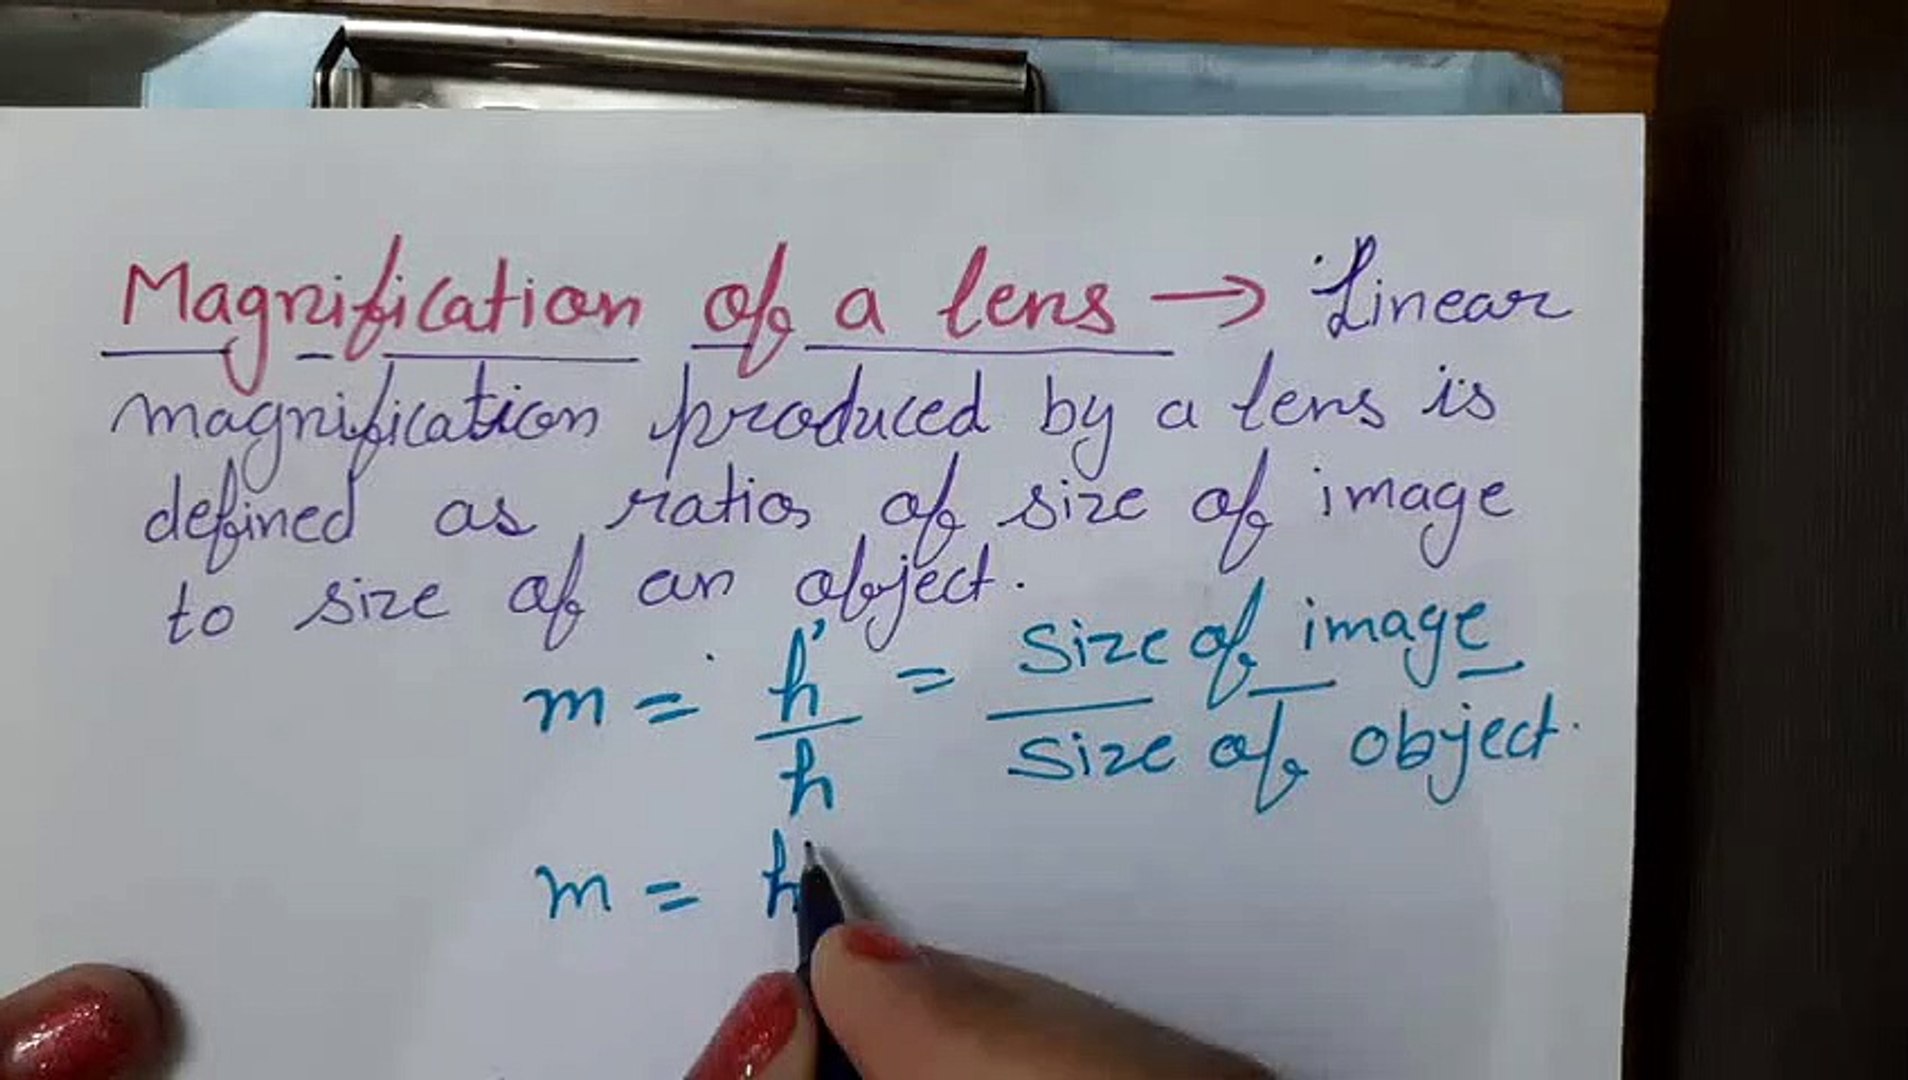 Magnification of a lens → Linear
magnification produced by a lens is
defined as ratio of size of image
to size of an object.
m = h'/h = size of image/size of object.
m = h